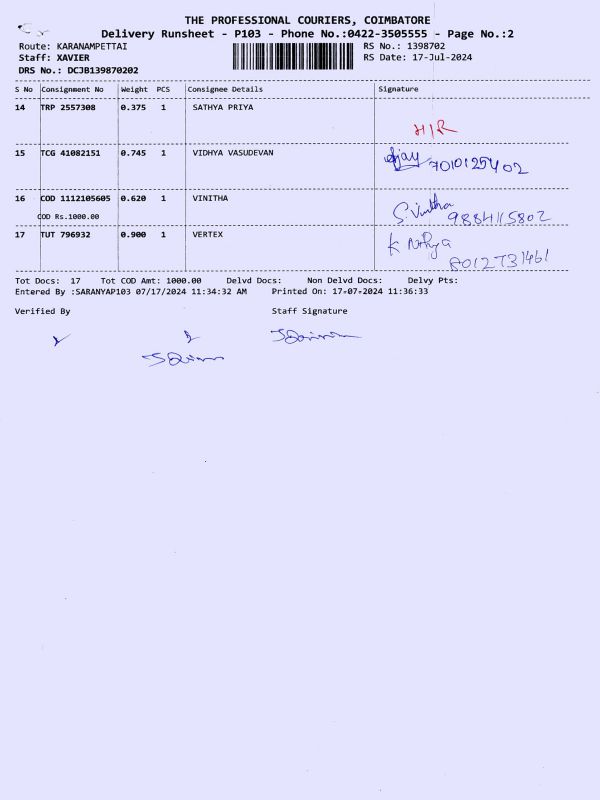 THE PROFESSIONAL COURIERS, COIMBATORE
Delivery Runsheet - P103 - Phone No.:0422-3505555 - Page No.:2
Route: KARANAMPETTAI RS No.: 1398702
Staff: XAVIER RS Date: 17-Jul-2024
DRS No.: DCJB139870202
S No Consignment No Weight PCS Consignee Details Signature
14 TRP 2557308 0.375 1 SATHYA PRIYA
H/R
15 TCG 41082151 0.745 1 VIDHYA VASUDEVAN Ajay 7010125402
16 COD 1112105605 0.620 1 VINITHA S. Vinitha
COD Rs.1000.00 9884115802
17 TUT 796932 0.900 1 VERTEX K
8012731461
Tot Docs: 17 Tot COD Amt: 1000.00 Delvd Docs: Non Delvd Docs: Delvy Pts:
Entered By :SARANYAP103 07/17/2024 11:34:32 AM Printed On: 17-07-2024 11:36:33
Verified By Staff Signature